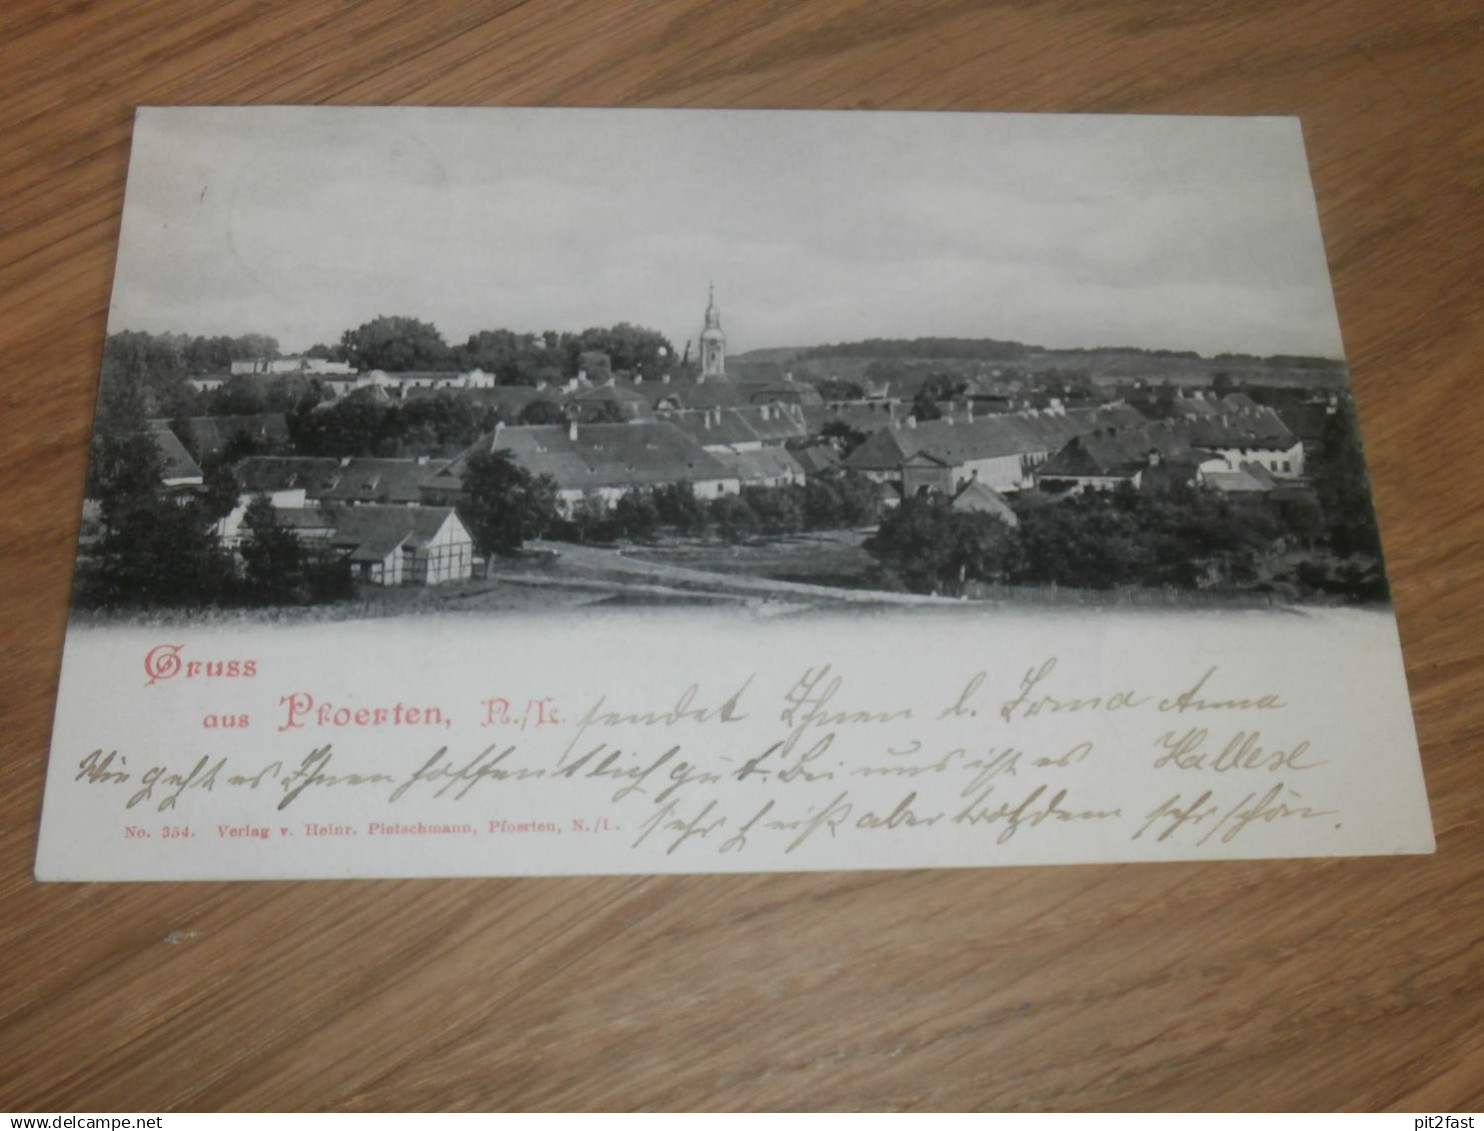 Gruss
aus Pfoerten, N./L. sendet Ihnen d. Irma Anna
Wie geht es Ihnen hoffentlich gut. Bei uns ist es
No. 354. Verlag v. Heinr. Pietschmann, Pfoerten, N./L. sehr heiß aber trotzdem sehr schön.
www.delcampe.net
pit2fast